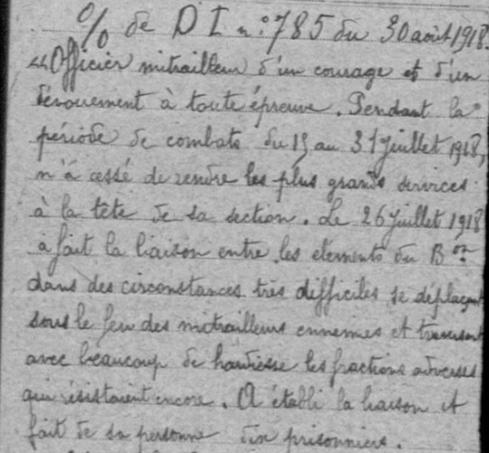 % de D I n° 785 du 30 août 1918.
"Officier mitrailleur d'un courage et d'un
dévouement à toute épreuve. Pendant la
période de combats du 15 au 31 juillet 1918,
n'a cessé de rendre les plus grands services
à la tête de sa section. Le 26 juillet 1918
à fait la liaison entre les elements du Bon
dans des circonstances très difficiles se déplaçant
sous le feu des mitrailleurs ennemies et traversant
avec beaucoup de hardiesse les fractions adverses
qui résistaient encore. A établi la liaison et
fait de sa personne dix prisonniers.